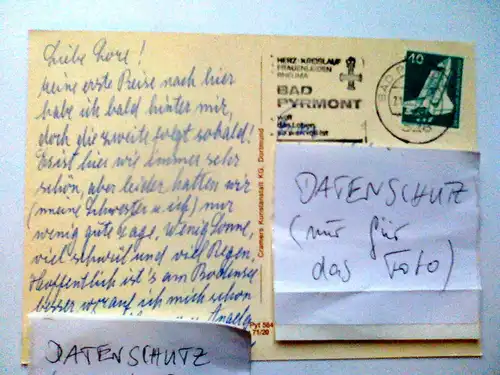 Liebe Lore!
meine erste Reise nach hier
habe ich bald hinter mir,
doch die zweite folgt sobald!
Es ist hier wie immer sehr
schön, aber leider hatten wir
(meine Schwester u. ich) nur
wenig gute Tage, wenig Sonne,
viel schwül und viel Regen.
Hoffentlich ist's am Bodensee
besser, worauf ich mich schon
HERZ-KREISLAUF
FRAUENLEIDEN
RHEUMA
BAD
PYRMONT
BAD P
40
Cramers Kunstanstalt KG, Dortmund
Pyt 584
71/29
DATENSCHUTZ
(nur für
das Foto)
DATENSCHUTZ